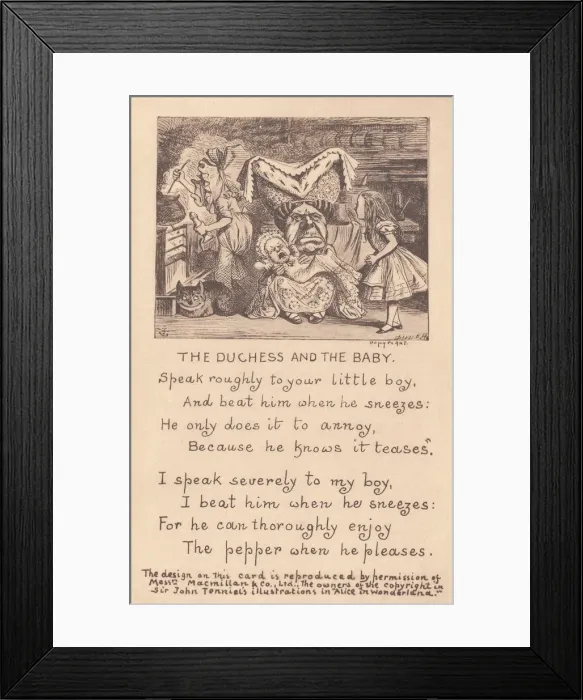 Copyright.
THE DUCHESS AND THE BABY.
Speak roughly to your little boy,
And beat him when he sneezes:
He only does it to annoy,
Because he knows it teases".
I speak severely to my boy,
I beat him when he sneezes:
For he can thoroughly enjoy
The pepper when he pleases.
The design on this card is reproduced by permission of
Messrs Macmillan & Co., Ltd., The owners of the copyright in
Sir John Tenniel's illustrations in "Alice in Wonderland."